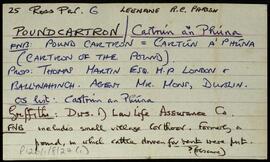 25 Ross Par. G LEENANE R.C. PARISH
POUNDCARTRON / Cairtrún an Phúna
FNB: POUND CARTRON = CARTÚN A' PHÚNA
(CARTRON OF THE POUND).
PROP: THOMAS MARTIN ESQ. M.P LONDON &
BALLYNAHINCH. AGENT MR. MONS, DUBLIN.
OS Cairtrún an Phúna
Griffiths. Dws. 1) Law Life Assurance Co.
FNB includes small village Formerly a
pound, in which cattle driven for rents were put.